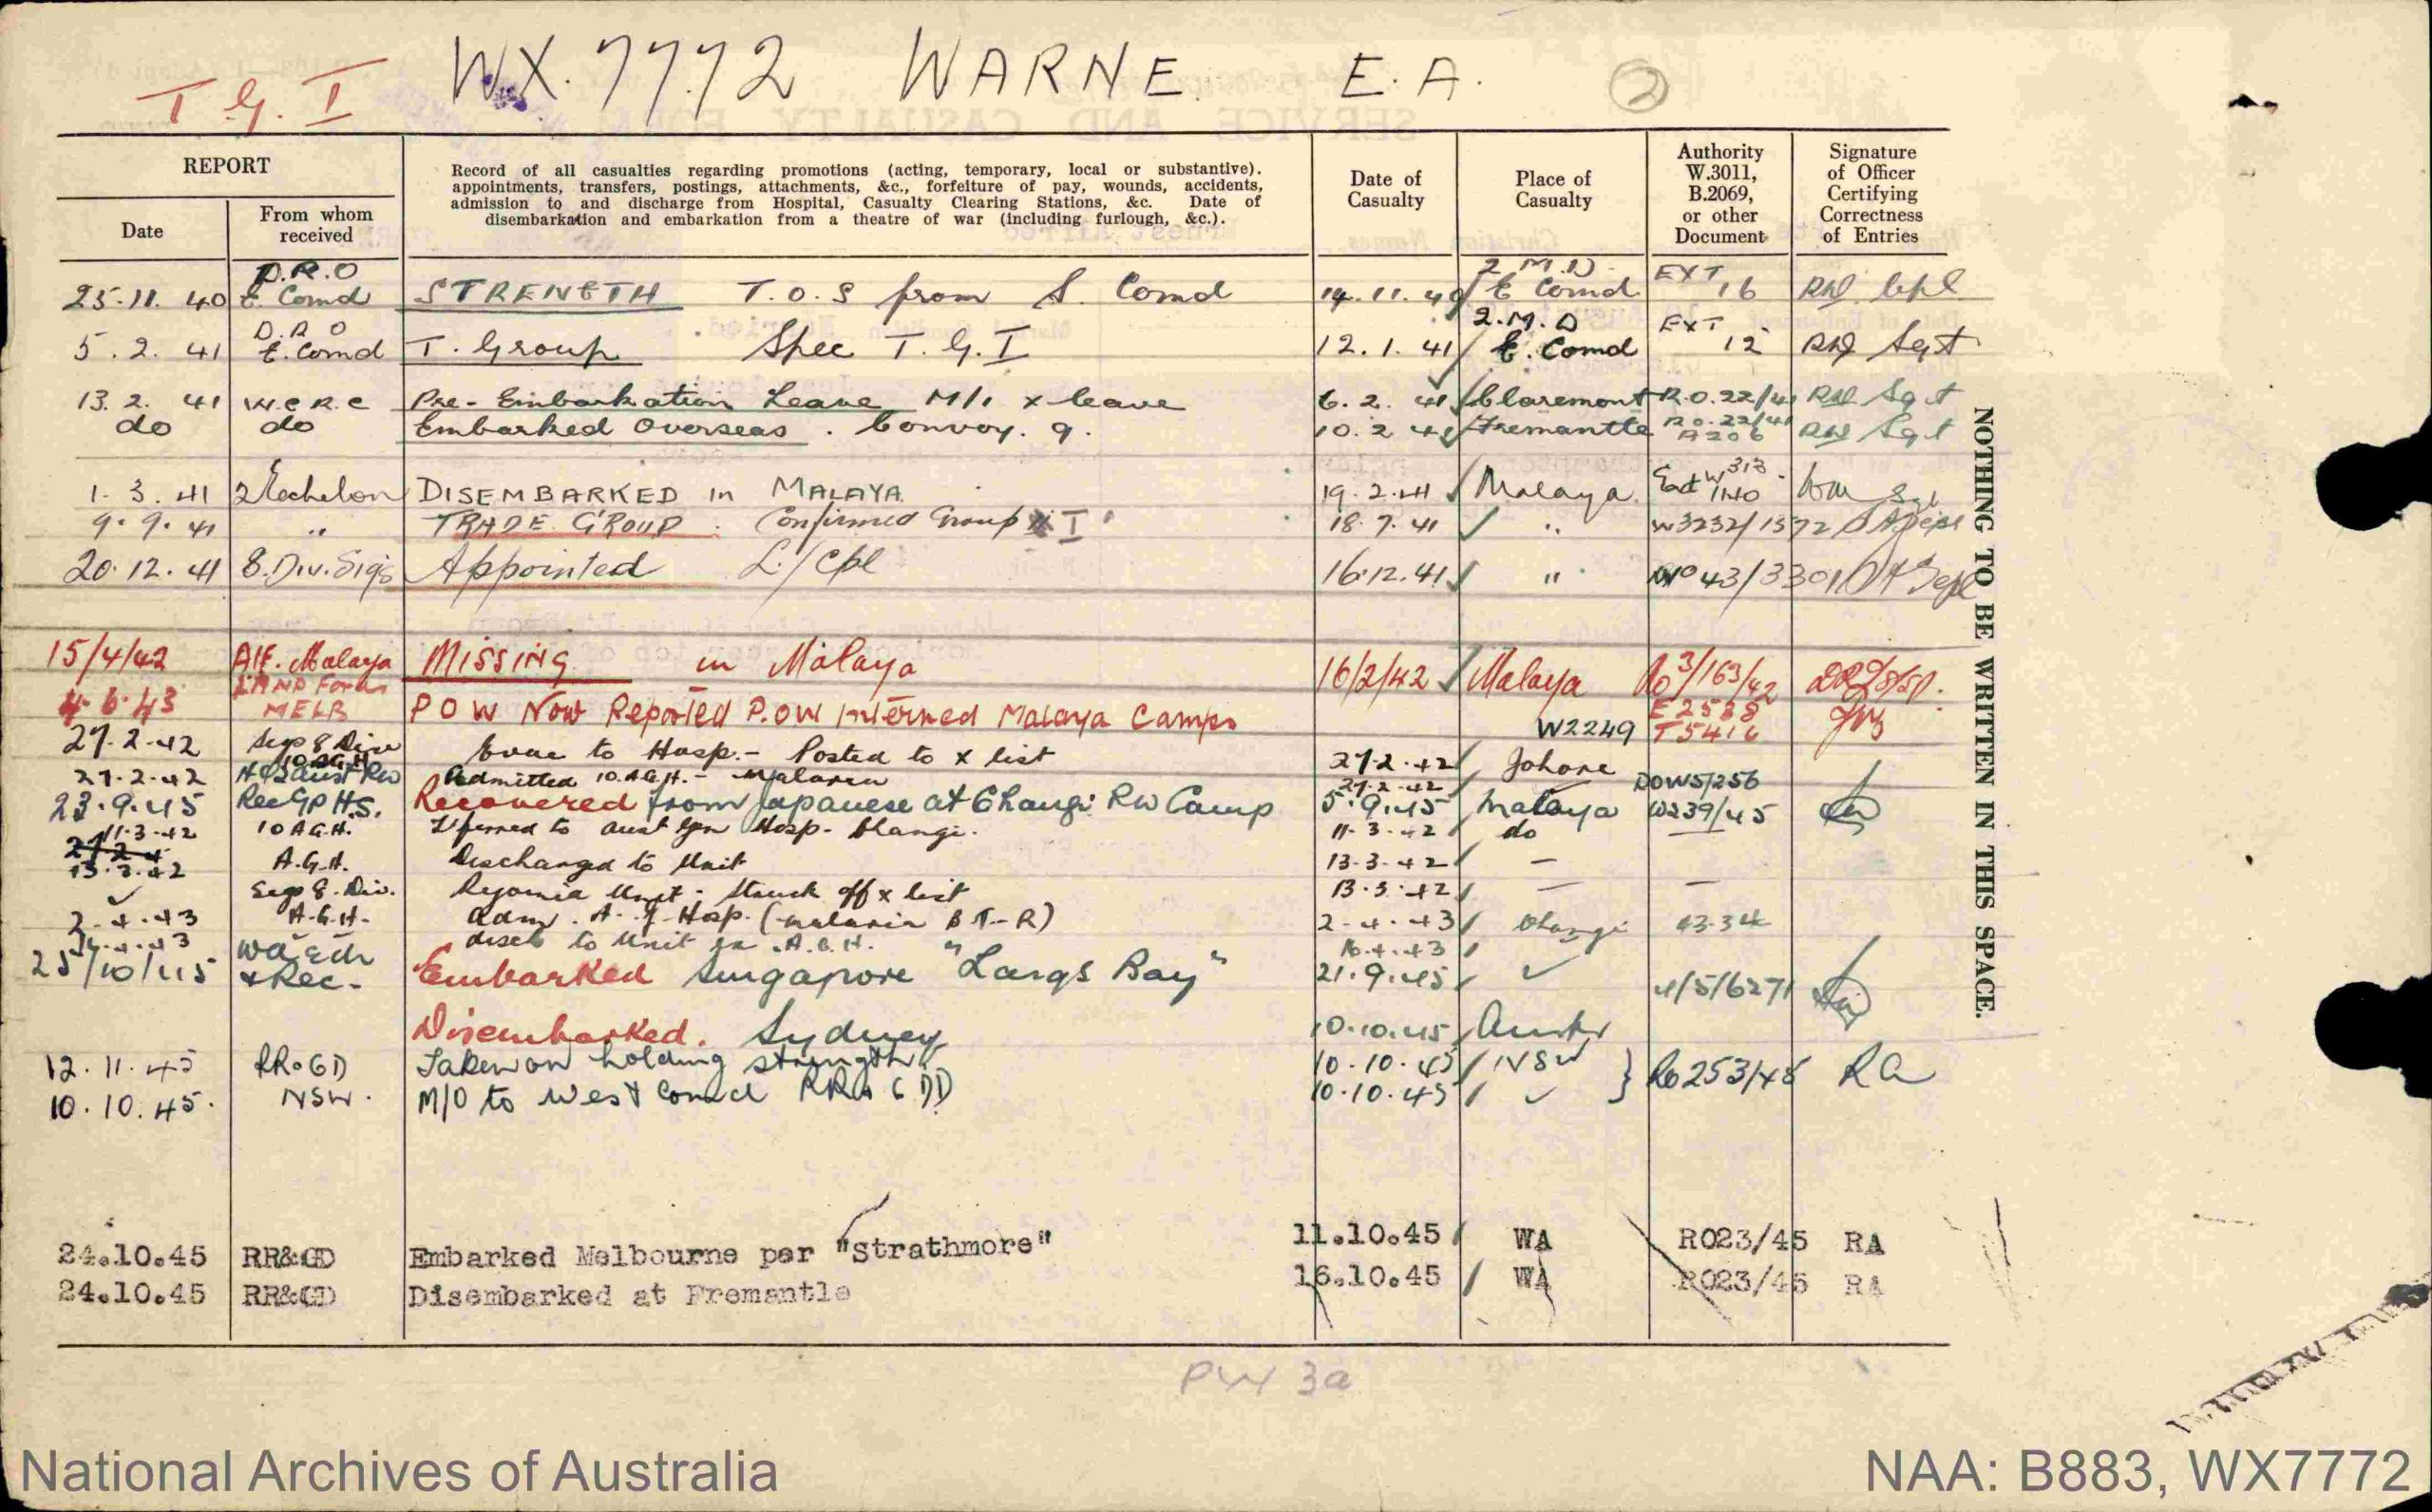 T G. I WX.7772 WARNE. E.A. 2
REPORT
Date
From whom received
Record of all casualties regarding promotions (acting, temporary, local or substantive).
appointments, transfers, postings, attachments, &c., forfeiture of pay, wounds, accidents,
admission to and discharge from Hospital, Casualty Clearing Stations, &c. Date of
disembarkation and embarkation from a theatre of war (including furlough, &c.).
Date of Casualty
Place of Casualty
Authority W.3011, B.2069, or other Document
Signature of Officer Certifying Correctness of Entries
25.11.40 D.R.O E. Comd STRENGTH T.O.S from S. Comd 14.11.40 2 M.D E Comd EXT 16 Cpl
5.2.41 D.R.O E. Comd T. Group Spec T.G.I 12.1.41 2.M.D E. Comd EXT 12 Sgt
13.2.41 W.C.R.C Pre-Embarkation Leave M/i x leave 6.2.41 Claremont R.O.22/41 Sgt
do do Embarked Overseas. Convoy. 9. 10.2.41 Fremantle RO.22/41 A206 Sgt
1.3.41 2 Echelon DISEMBARKED in MALAYA 19.2.41 Malaya
9.9.41 " TRADE GROUP. Confirmed Group I 18.7.41 " W3232/1572
20.12.41 8.Div.Sigs Appointed L/Cpl 16.12.41 " 43/3301
15/4/42 AIF. Malaya MISSING in Malaya 16/2/42 Malaya Ro3/163/42
4.6.43 LAND Forces MELB POW Now Reported P.O.W Interned Malaya Camps W2249 E2538 T5416
27.2.42 Sigs 8 Div Evac to Hosp. - Posted to x list 27.2.42 Johore
27.2.42 10 AGH Admitted 10.A.G.H. - Malaria 27.2.42 DOW5/256
23.9.45 Rec GP H.S. Recovered from Japanese at Changi PW Camp 5.9.45 Malaya W239/45
11.3.42 10 A.G.H. T'ferred to Aust Gen Hosp. Changi. 11.3.42 do
13.3.42 A.G.H. Discharged to Unit 13-3-42 —
Sigs 8. Div. Rejoined Unit - Struck off x list 13.3.42 — —
2-4-43 A.G.H. Adm. A.G. Hosp. (malaria B T-R) 2-4-43 Changi 43.34
disch to Unit A.G.H. 16.4.43
25/10/45 WA Ech & Rec. Embarked Singapore "Largs Bay" 21.9.45 4/5/6271
Disembarked. Sydney 10.10.45 Austr
12.11.45 RR&GD Taken on holding strength 10.10.45 NSW Ro253/45 RA
10.10.45. NSW. M/O to West Comd RR&GDD 10.10.45
24.10.45 RR&GD Embarked Melbourne per "Strathmore" 11.10.45 WA RO23/45 RA
24.10.45 RR&GD Disembarked at Fremantle 16.10.45 WA RO23/45 RA
NOTHING TO BE WRITTEN IN THIS SPACE.
PW 3a
National Archives of Australia
NAA: B883, WX7772